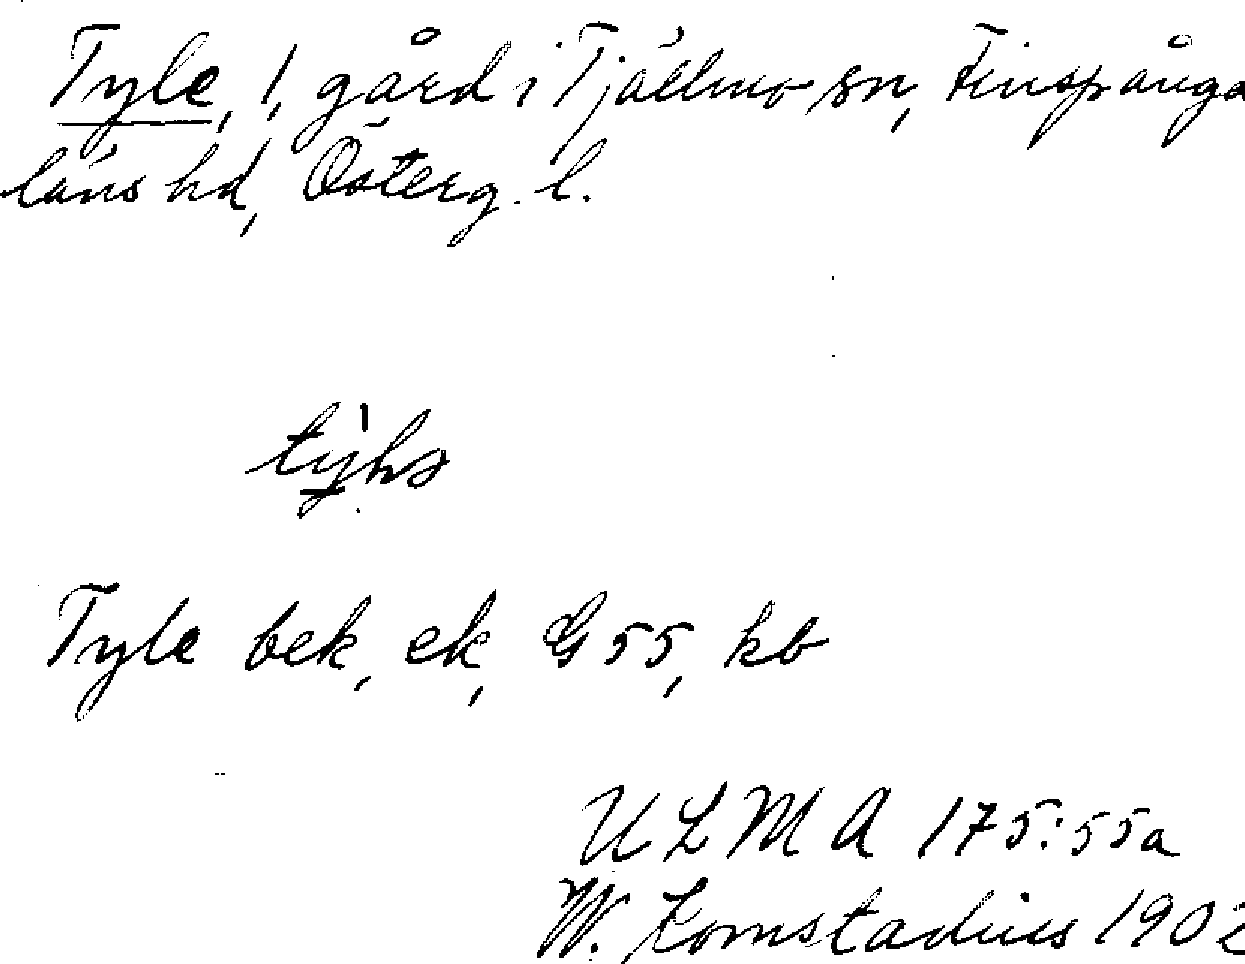 Tyle, 1, gård i Tjällmo sn, Finspånga
läns hd, Österg. l.
Tyle bek, ek, G 55, kb
U L M A 175:55a
W. Komstadius 1902